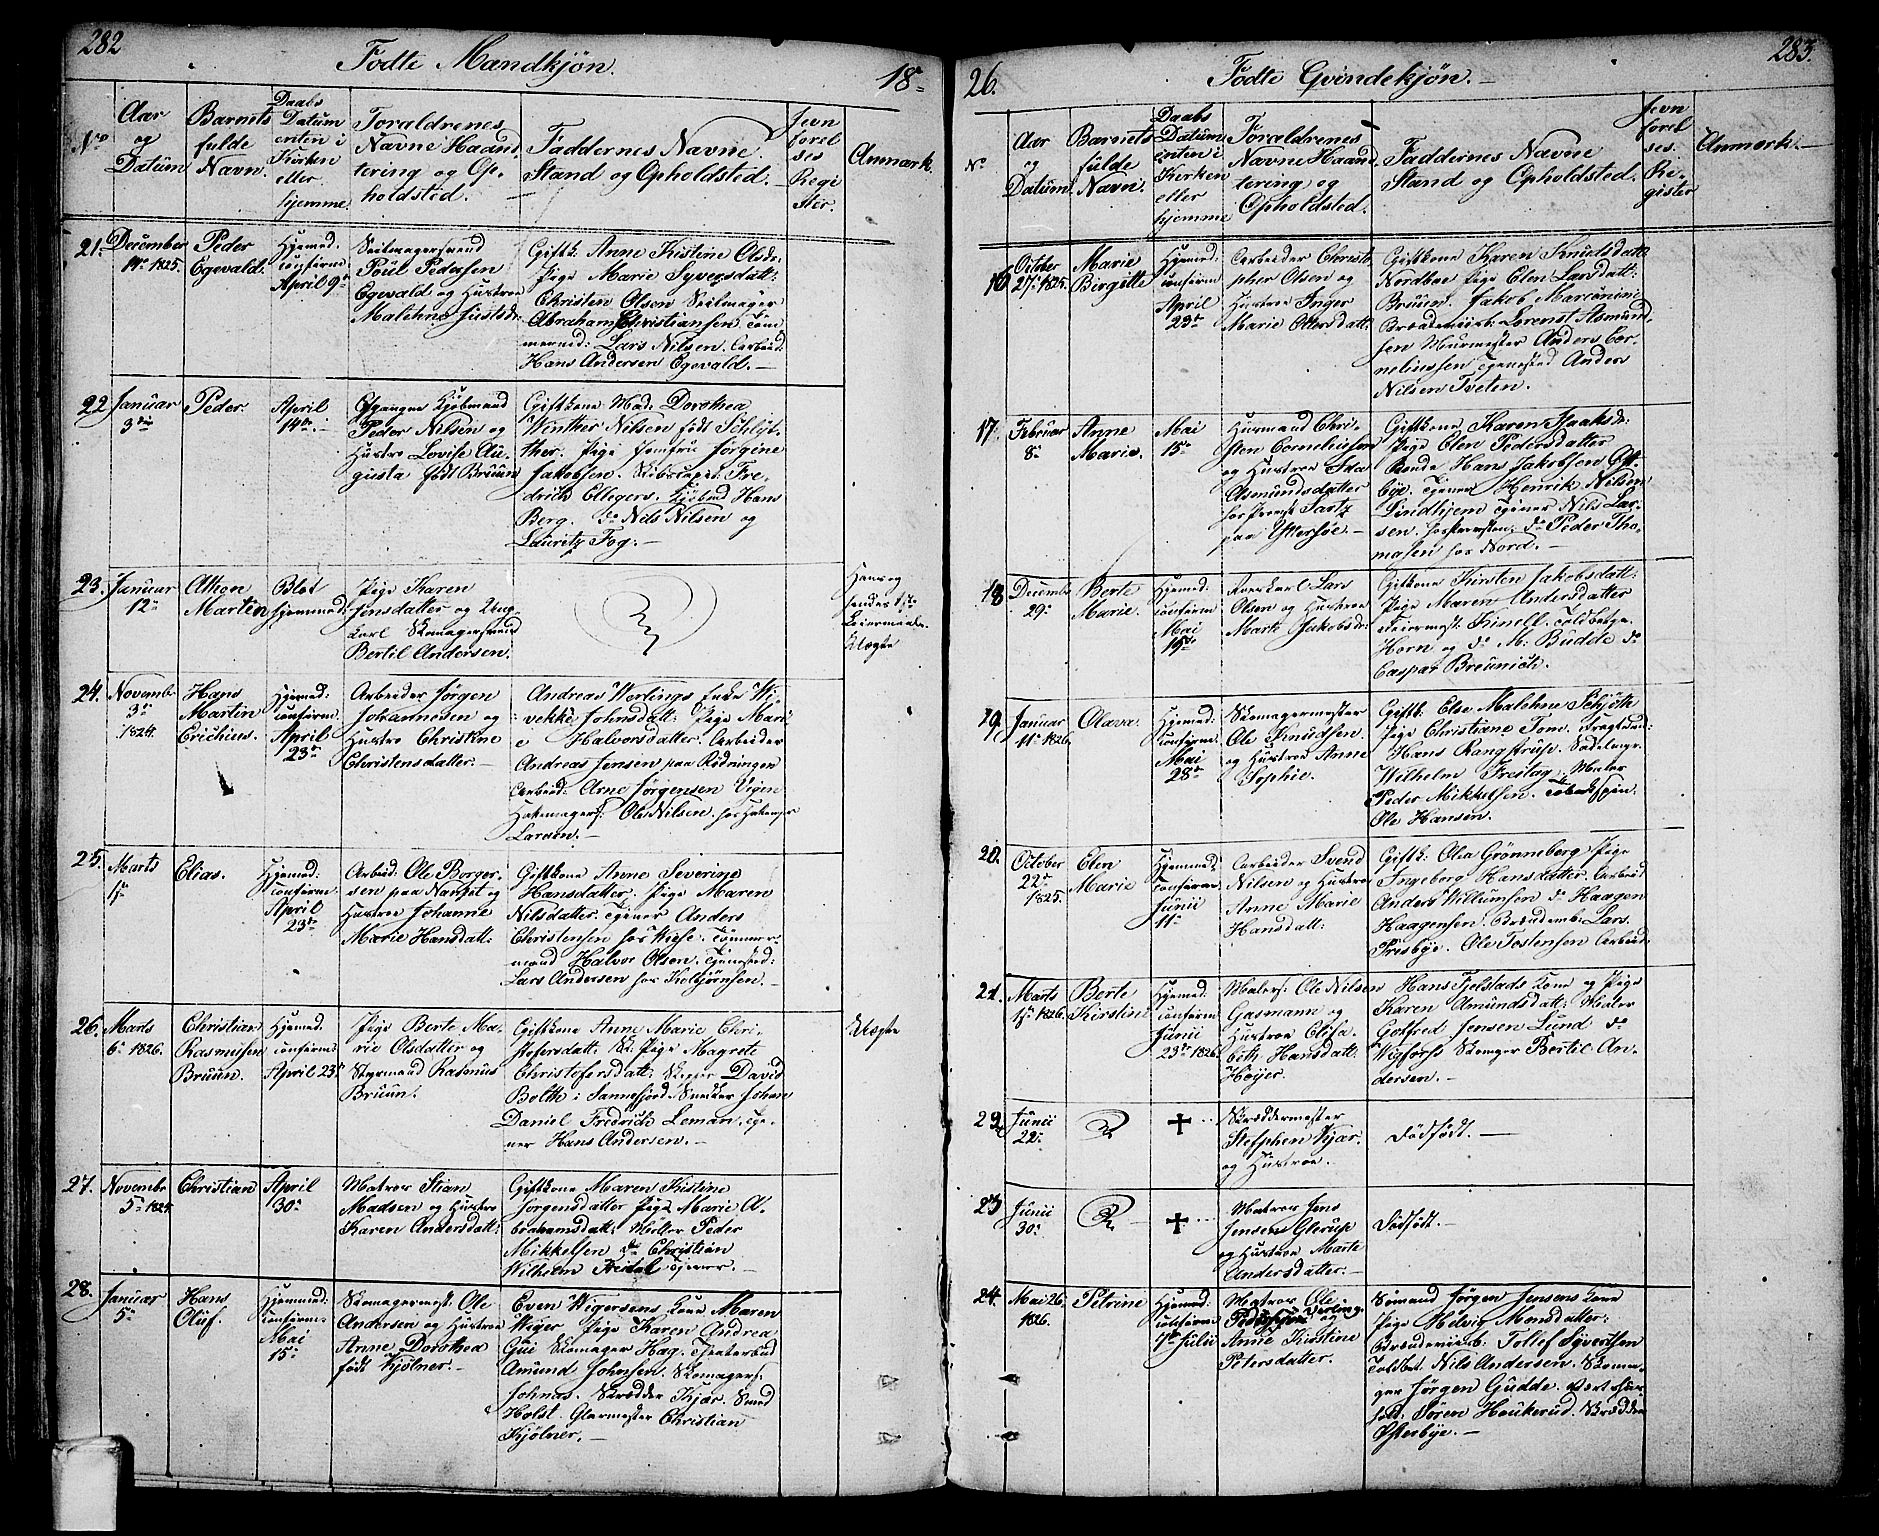 282
Fødte Mandkjøn.
18
No
Aar
og
Datum
Barnets
fulde
Navn.
Daabs
Datum
enten i
Kirken
eller
hjemme
Foraldrenes
Navne Haand
tering og Op-
holdsted.
Faddernes Navne
Stand og Opholdsted.
Jevn
forel
ses
Regi
ster.
Anmærk.
21.
December
14 1825.
Peder
Egevald.
Hjemmed:
confirme
April 9
Seilmagersvend
Poul Pedersen
Egevald og Hustroe
Malehne
Giftk: Anne Kistine Olsdr.
Pige Marie Syversdatt:
Christen Olsen Seilmager
Abraham Christiansen Tøm
mermd: Lars Nilsen. Arbeid:
Hans Andersen Egevald.
22
Januar
3die
Peder.
April
14de
Kjøbmand
Peder Nilsen og
Hustro Lovise Au-
gusta født Bruun
Giftkone Mad. Dorothea
Winther Nilsen født Schlyt-
ther. Pige Jomfru Jørgine
Jakobsen. Skibscapit: Fre-
drich Ellegers. Kjøbmd Hans
Berg. do Nils Nilsen og
Lauritz Fog.
23.
Januar
12
Martin
Blot
hjemmed:
Pige Karen
Jensdatter og Ung-
karl Skomagersvend
Bertil Andersen.
Hans og
hendes 1ste
Leiermaal
Uægte
24.
Novembr
3
1824.
Hans
Martin
Erichius.
Hjemed:
confirm.
April
23de
Arbeider Jørgen
Johannesen og
Hustro Christine
Christensdatter.
Andreas Werlings Enke Wi-
vekke Johnsdatt: Pige Mari
e Halvorsdatter. Arbeider
Andreas Jensen paa Rødningen
Arbeid: Arne Jørgensen Vigen
Ole Nilsen. hos
Larsen.
25.
Marts
1
Elias.
Hjemed:
confirm:
April
23de
Arbeid: Ole Borger-
sen paa Nanset og
Hustroe Johanne
Marie Hansdatt:
Giftkone Anne Severine
Hansdatter. Pige Maren
Nilsdatter. Tjener Anders
Christensen hos Wiese. Tømmer-
mand Halvor Olsen. Tjenested:
Lars Andersen hos Kolbjørnsen.
26.
Marts
6 1826.
Christian
Rasmusen
Bruun.
Hjemed.
confirm:
April 23
Pige Berte Ma-
rie Olsdatter og
Styrmand Rasmus
Bruun.
Giftkone Anne Marie Chri-
stofersdatt: Pige Magrete
Christofersdatt: David
Bolth i Sannefjord. Snedker Johan
Daniel Fredrich Leman. Tje-
ner Hans Andersen.
Uægte
27.
Novembr
5 1825
Christian
April
30
Matros Stian
Madsen og Hustro
Karen Andersdatt:
Giftkone Maren Kistine
Jørgensdatter Pige Marie A-
brahamsdatt: Møller Peder
Mikkelsen do Christian
Wilhelm Tjener.
28.
Januar
5
Hans
Oluf.
Hjemmed:
confirm:
Mai
15
Skomagermest: Ole
Andersen og Hustroe
Anne Dorothea
født Kjølner.
Even Wigersens Kone Maren
Weyer Pige Karen Andrea
Gui Skomager Hag.
Amund Johnsen. Skomagers:
Johnas. Skrædder Kjær. Smed
Holst. Glarmester Christian
Kjølner.
26.
Fødte Qvindekjøn.
283.
No
Aar
og
Datum
Barnets
fulde
Navn.
Daabs
Datum
enten i
Kirken
eller
hjemme
Foraldrenes
Navne Haand
tering og
Opholdsted.
Faddernes Navne
Stand og Opholdsted.
Jevn
forel
ses.
Re-
gister
Anmærk.
16
October
27 1825.
Marie
Birgitte
Hjemed:
confirm
April
23de
Arbeider Christo
pher Olsen og
Hustroe Inger
Marie Ottersdatt:
Giftkone Karen Knudsdatt
Nordboe Pige Elen Larsdatt:
Bruun. Jakob Marcunini
Lorenst Asmund-
sen Murmester Anders Cor-
neliussen Tjenestd Anders
Nilsen Tveten.
17.
Februar
8
Anne
Marie.
Mai
15
Husmand Chri-
sten Corneliussen
og Hustroe Ida
Asmundsdatter
Sartz
paa Østersøe.
Giftkone Karen Isaksdr:
Pige Elen Pedersdatter
Bonde Hans Jakobsen
Tjener Henrik Nilsen
Lindhjem Tjener Nils Lar-
sen. do Peder Tho-
masen hos Nord.
18
Decembr
29.
Berte
Marie.
Hjemed:
confirm:
Mai
15de
Lars
Olsen og Hustroe
Marte Jakobsdr:
Giftkone Kirsten Jakobsdatt:
Pige Maren Andersdatter
Feiermest: Kinell. Toldbetje.
Horn og do M. Budde do
Caspar Breunich.
19.
Januar
11 1826.
Olava.
Hjemed:
confirm.
Mai
28de
Skomagermester
Ole Knudsen.
og Hustroe Anne
Sophie.
Giftk: Else Malehne Schjøth
Pige Christiane Tom.
Hans Rangstrup. Sadelmgr.
Wilhelm Freitag. Maler
Peder Mikkelsen. Tobakspin.
Ole Hansen.
20.
October
22
1825.
Elen
Marie
Hjemmed:
confirme
Junii
11
Arbeider Svend
Nilsen og Hustroe
Anne Marie
Hansdatt:
Giftk: Olea Grønneberg Pige
Ingeborg Hansdatter. Arbeid
Anders Willumsen do Haagen
Haagensen. Lars
Frisbye. Ole Tostensen Arbeid:
21.
Marts
1 1826.
Berte
Kirstine
Hjemed:
confirm
Junii
23de 1826
Malers: Ole Nilsen
Gasmann og
Hustroe Elisa-
beth Hansdatt:
Høyer.
Hans Fjelstads Kone og Pige
Karen Amundsdatt: Maler
Gotfred Jensen Lund do
Wigforss Skomgr Bertil An-
dersen.
22
Junii
22
Skræddermester
Stefphen Kjær.
og Hustroe.
Dødfødt.
23
Junii
30
Matros Jens
Jensen Glerup
og Hustroe Marte
Andersdatter.
Dødfødt.
24.
Mai 26.
1826.
Petrine
Hjemed:
confirm:
Julii
Matros Ole
og
Anne Kirstine
Petersdatter.
Sømand Jørgen Jensens Kone
Pige Helvig Monsdatter:
Tollef Syvertsen
Toldbet. Nils Andersen. Skoma-
ger Jørgen Gudde.
Søren Haukerud. Skrædder
Østerbye.